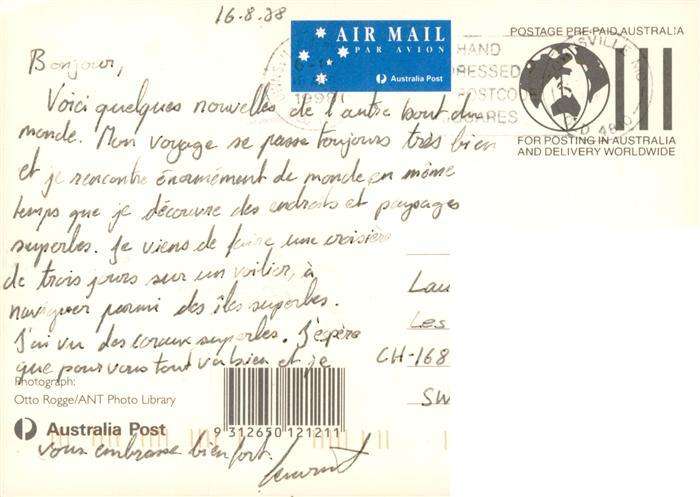 16.8.98
AIR MAIL
PAR AVION
Australia Post
POSTAGE PRE-PAID AUSTRALIA
HAND
POSTCODE
SQUARES
FOR POSTING IN AUSTRALIA
AND DELIVERY WORLDWIDE
Bonjour,
Voici quelques nouvelles de l'autre bout du
monde. Mon voyage se passe toujours très bien
et je rencontre énormément de monde en même
temps que je découvre des endroits et paysages
superbes. Je viens de faire une croisière
de trois jours sur un voilier, à
naviguer parmi des îles superbes.
J'ai vu des coraux superbes. J'espère
que pour vous tout va bien et je
vous embrasse bien fort.
Lau
Les
CH-168
SW
Photograph:
Otto Rogge/ANT Photo Library
Australia Post
9 312650 121211